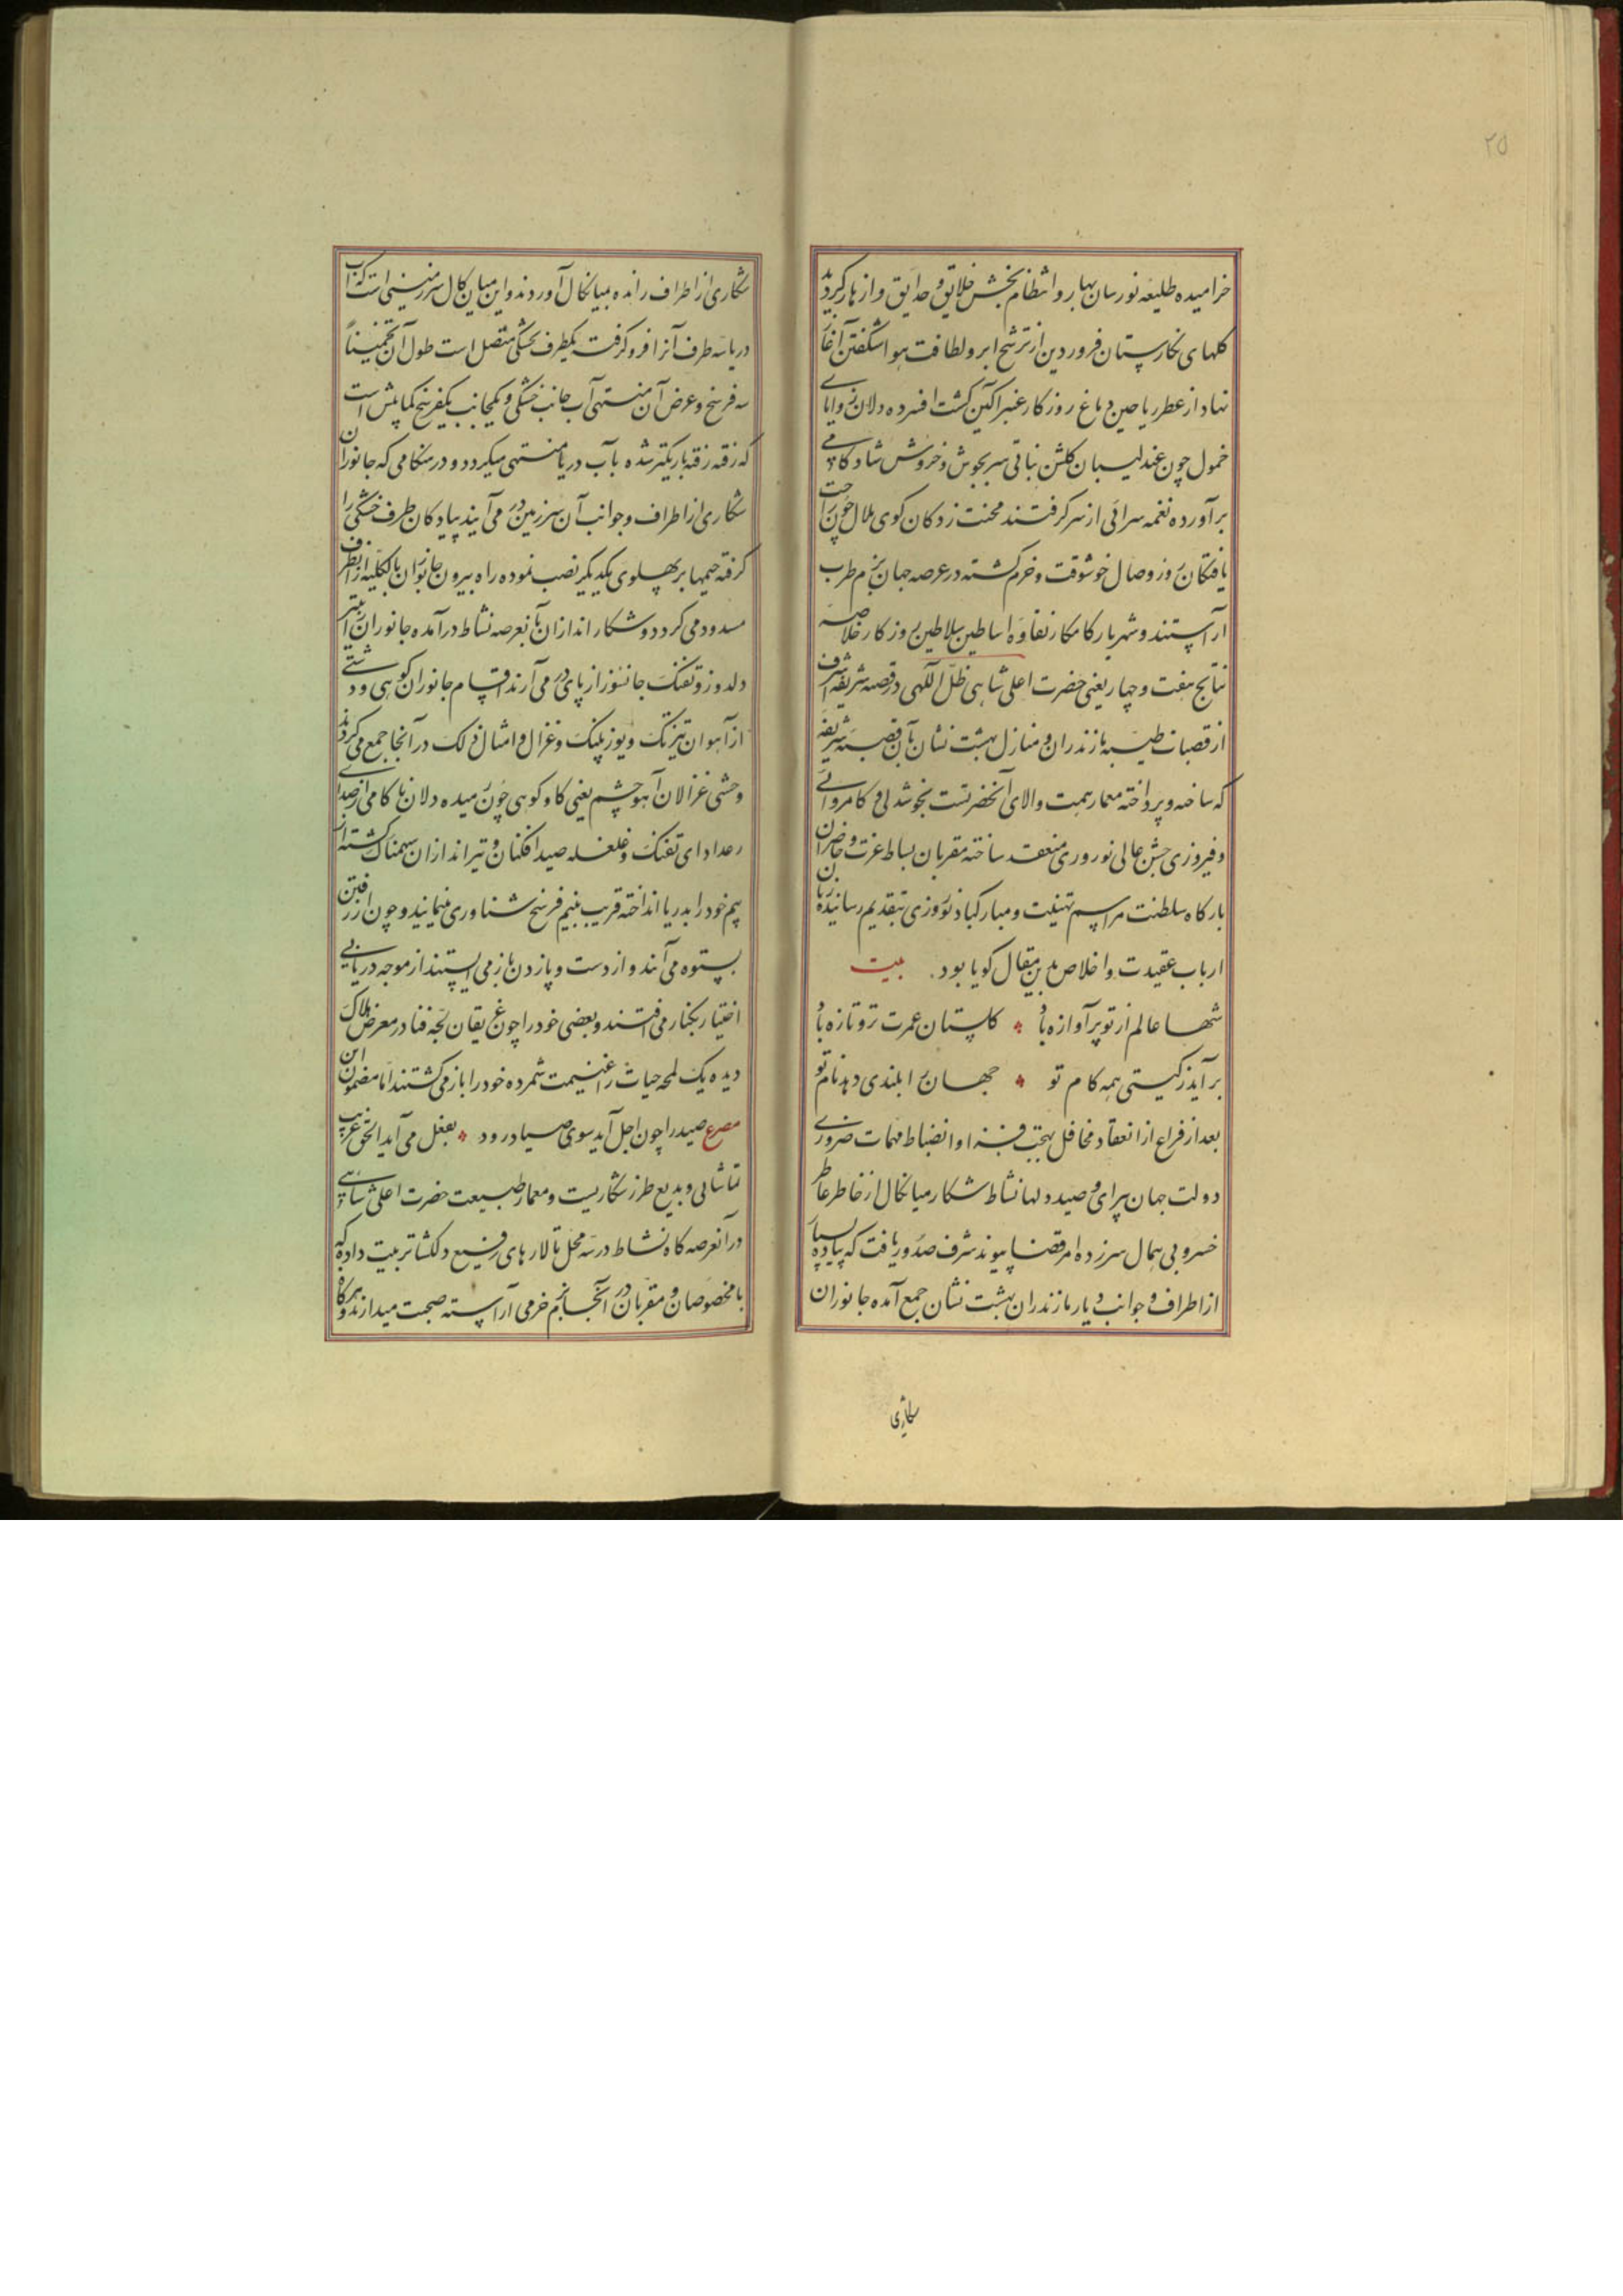 ۲۵
خرامیده طلیعه نورسان بهار و انتظام بخش خلایق و حدایق و ازهار گردید
کلهای نکارستان فروردین از ترشح ابر و لطافت هوا شکفتن آغاز
نهاد از عطر ریاحین دماغ روزکار عنبر آکین کشت افسرده دلان زوایای
خمول چون عندلیبان کلشن نباتی سر بجوش و خروش شادکامی
برآورده نغمه سرائی از سر کرفتند محنت زدکان کوی ملال چون راحت
یافتکان روز وصال خوشوقت و خرم کشته در عرصه جهان بزم طرب
آراستند و شهریار کامکار نقاوه اساطین سلاطین روزکار خلاصه
نتایج هفت و چهار یعنی حضرت اعلی شاهی ظل اللهی در قصبه شریفه اشرف
از قصبات طیبه مازندران و منازل بهشت نشان آن قصبه شریفه
که ساخته و پرداخته معمار همت والای آنحضرتست بخوشدلی و کامروائی
و فیروزی جشن عالی نوروزی منعقد ساخته مقربان بساط عزت و حاضران
بارکاه سلطنت مراسم تهنیت و مبارکباد نوروزی بتقدیم رسانیده زبان
ارباب عقیدت و اخلاص بدین مقال کویا بود. بیت
شها عالم از تو پر آوازه باد کلستان عمرت تر و تازه باد
برآید ز کیتی همه کام تو جهان را بلندی دهد نام تو
بعد از فراغ از انعقاد محافل بهجت فزا و انضباط مهمات ضروری
دولت جهان پیرای و صید دلها نشاط شکار میانکال از خاطر عاطر
خسرو بی همال سر زده امر قضا پیوند شرف صدور یافت که پیاده بسیار
از اطراف و جوانب دیار مازندران بهشت نشان جمع آمده جانوران
شکاری
شکاری از اطراف رانده بمیانکال آوردند و این میان کال سرزمینی است که آب
دریا سه طرف آنرا فرو کرفته یکطرف بخشکی متصل است طول آن تخمیناً
سه فرسخ و عرض آن منتهی آب جانب خشکی و یکجانب یکفرسخ کمابیش است
که رفته رفته باریکتر شده بآب دریا منتهی میکردد و در هنکامی که جانوران
شکاری از اطراف و جوانب آن سرزمین در می آیند پیادکان طرف خشکی را
کرفته خیمها بر پهلوی یکدیکر نصب نموده راه بیرون جانوران بالکلیه از آنطرف
مسدود می کردد و شکار اندازان بآنعرصه نشاط درآمده جانوران را بتیر
دلدوز و تفنک جانسوز از پای در می آرند اقسام جانوران کوهی و دشتی
از آهوان تیزتک و یوز پلنک و غزال و امثال ذلک در آنجا جمع می کردند
وحشی غزالان آهو چشم یعنی کاو کوهی چون رمیده دلان ناکامی از صدای
رعد ادای تفنک و غلغله صید افکنان و تیراندازان سهمناک کشته از
بیم خود را بدریا انداخته قریب بنیم فرسخ شناوری مینمایند و چون از رفتن
بستوه می آیند و از دست و پا زدن باز می ایستند از موجه دریا بی
اختیار بکنار می افتند و بعضی خود را چون غریقان لجه فنا در معرض هلاک
دیده یک لمحه حیات را غنیمت شمرده خود را باز می کشتند اما مضمون این
مصرع صید را چون اجل آید سوی صیاد رود بفعل می آید الحق غریب
تماشائی و بدیع طرز شکاریست و معمار طبیعت حضرت اعلی شاهی
در آنعرصه کاه نشاط در سه محل تالارهای رفیع دلکشا ترتیب داده که
با مخصوصان و مقربان در آنجا بزم خرمی آراسته صحبت میدارند و هرکاه